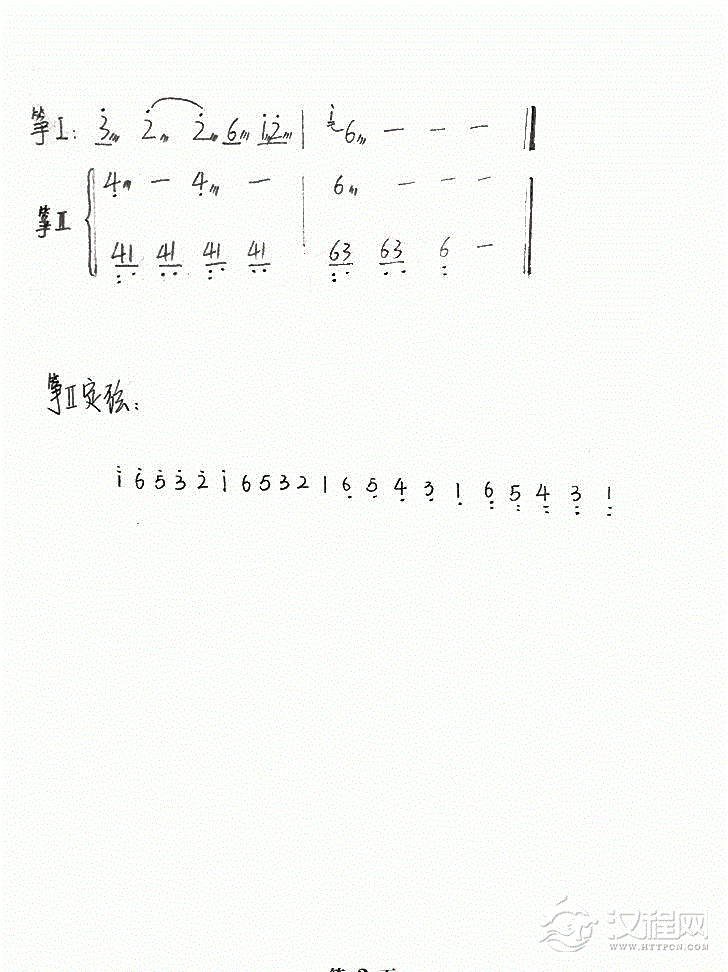 筝Ⅰ: 3 2 2 6 1 2 | 1 6 — — — ‖
筝Ⅱ 4 — 4 — | 6 — — —
41 41 41 41 | 63 63 6 — ‖
筝Ⅱ定弦:
1 6 5 3 2 1 6 5 3 2 1 6 5 4 3 1 6 5 4 3 1
汉程网
WWW.HTTPCN.COM